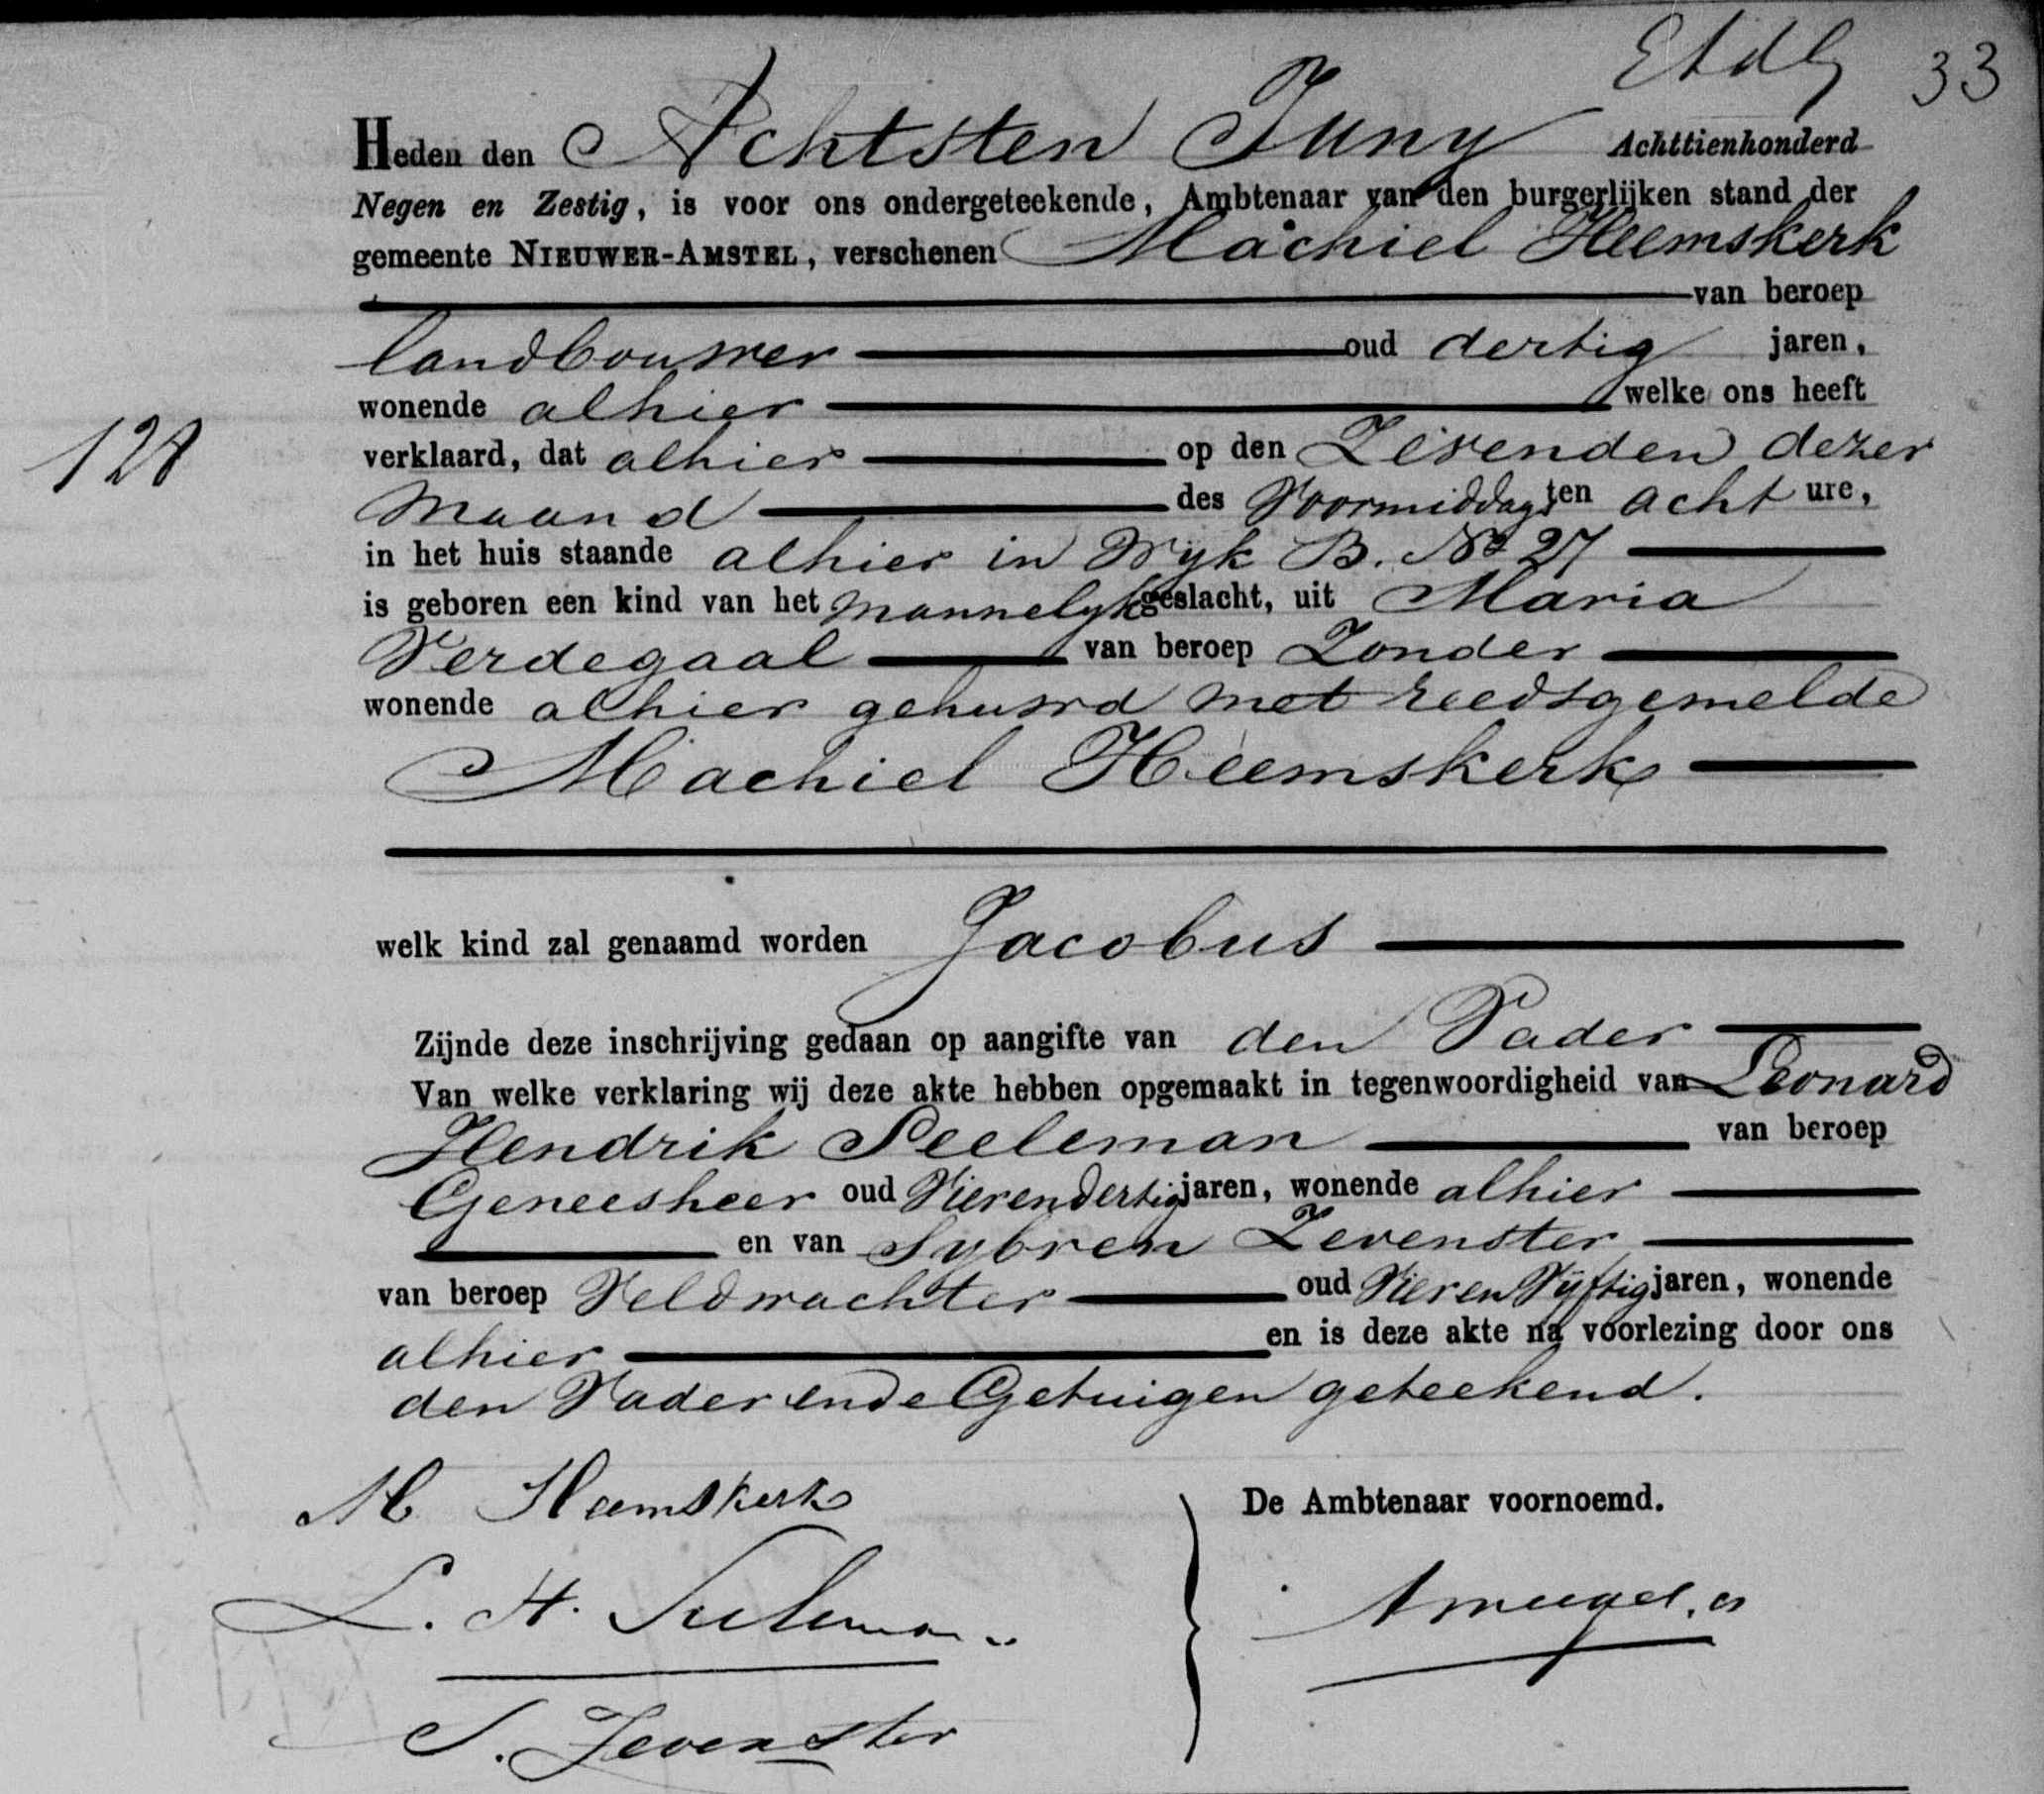 33
Heden den Achtsten Juny Achttienhonderd
Negen en Zestig, is voor ons ondergeteekende, Ambtenaar van den burgerlijken stand der
gemeente NIEUWER-AMSTEL, verschenen Machiel Heemskerk
van beroep
landbouwer oud dertig jaren,
wonende alhier welke ons heeft
128
verklaard, dat alhier op den Zevenden dezer
maand des Voormiddags ten acht ure,
in het huis staande alhier in Wyk B. No 27
is geboren een kind van het mannelyk geslacht, uit Maria
Verdegaal van beroep Zonder
wonende alhier gehuwd met reedsgemelde
Machiel Heemskerk
welk kind zal genaamd worden Jacobus
Zijnde deze inschrijving gedaan op aangifte van den Vader
Van welke verklaring wij deze akte hebben opgemaakt in tegenwoordigheid van Leonard
Hendrik Seeleman van beroep
Geneesheer oud Vierendertig jaren, wonende alhier
en van Sybren Zevenster
van beroep Veldwachter oud Vieren Vyftig jaren, wonende
alhier en is deze akte na voorlezing door ons
den Vader ende Getuigen geteekend.
M Heemskerk
De Ambtenaar voornoemd.
L. H. Seeleman
S. Zevenster